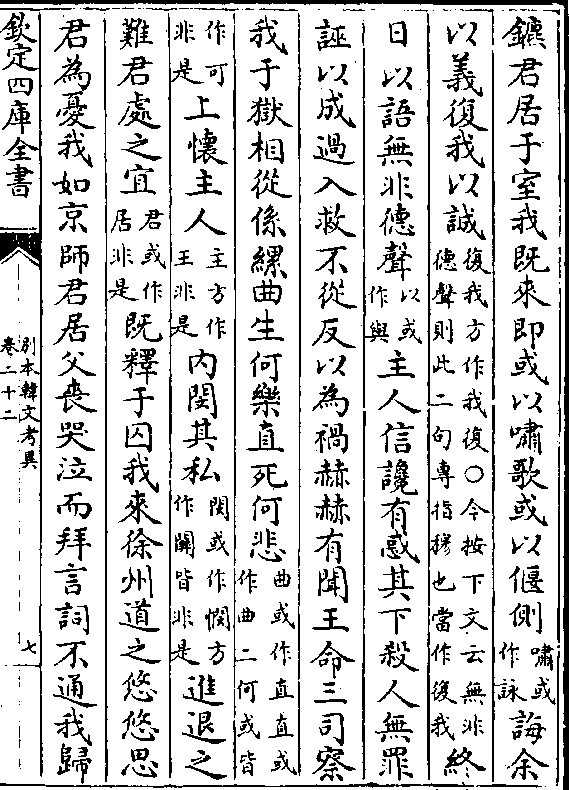 鑣君居于室我既來即或以嘯歌或以偃側嘯或作詠誨余
以義復我以誠復我方作我復○今按下文云無非德聲則此二句專指穆也當作復我終
日以語無非德聲以或作與主人信讒有惑其下殺人無罪
誣以成過入救不從反以為禍赫赫有聞王命三司察
我于獄相從係縲曲生何樂直死何悲曲或作直直或作曲二何或皆
作可非是上懷主人主方作王非是内閔其私閔或作憫方作關皆非是進退之
難君處之宜君或作居非是既釋于囚我來徐州道之悠悠思
君為憂我如京師君居父喪哭泣而拜言詞不通我歸
欽定四庫全書
別本韓文考異
卷二十二
七